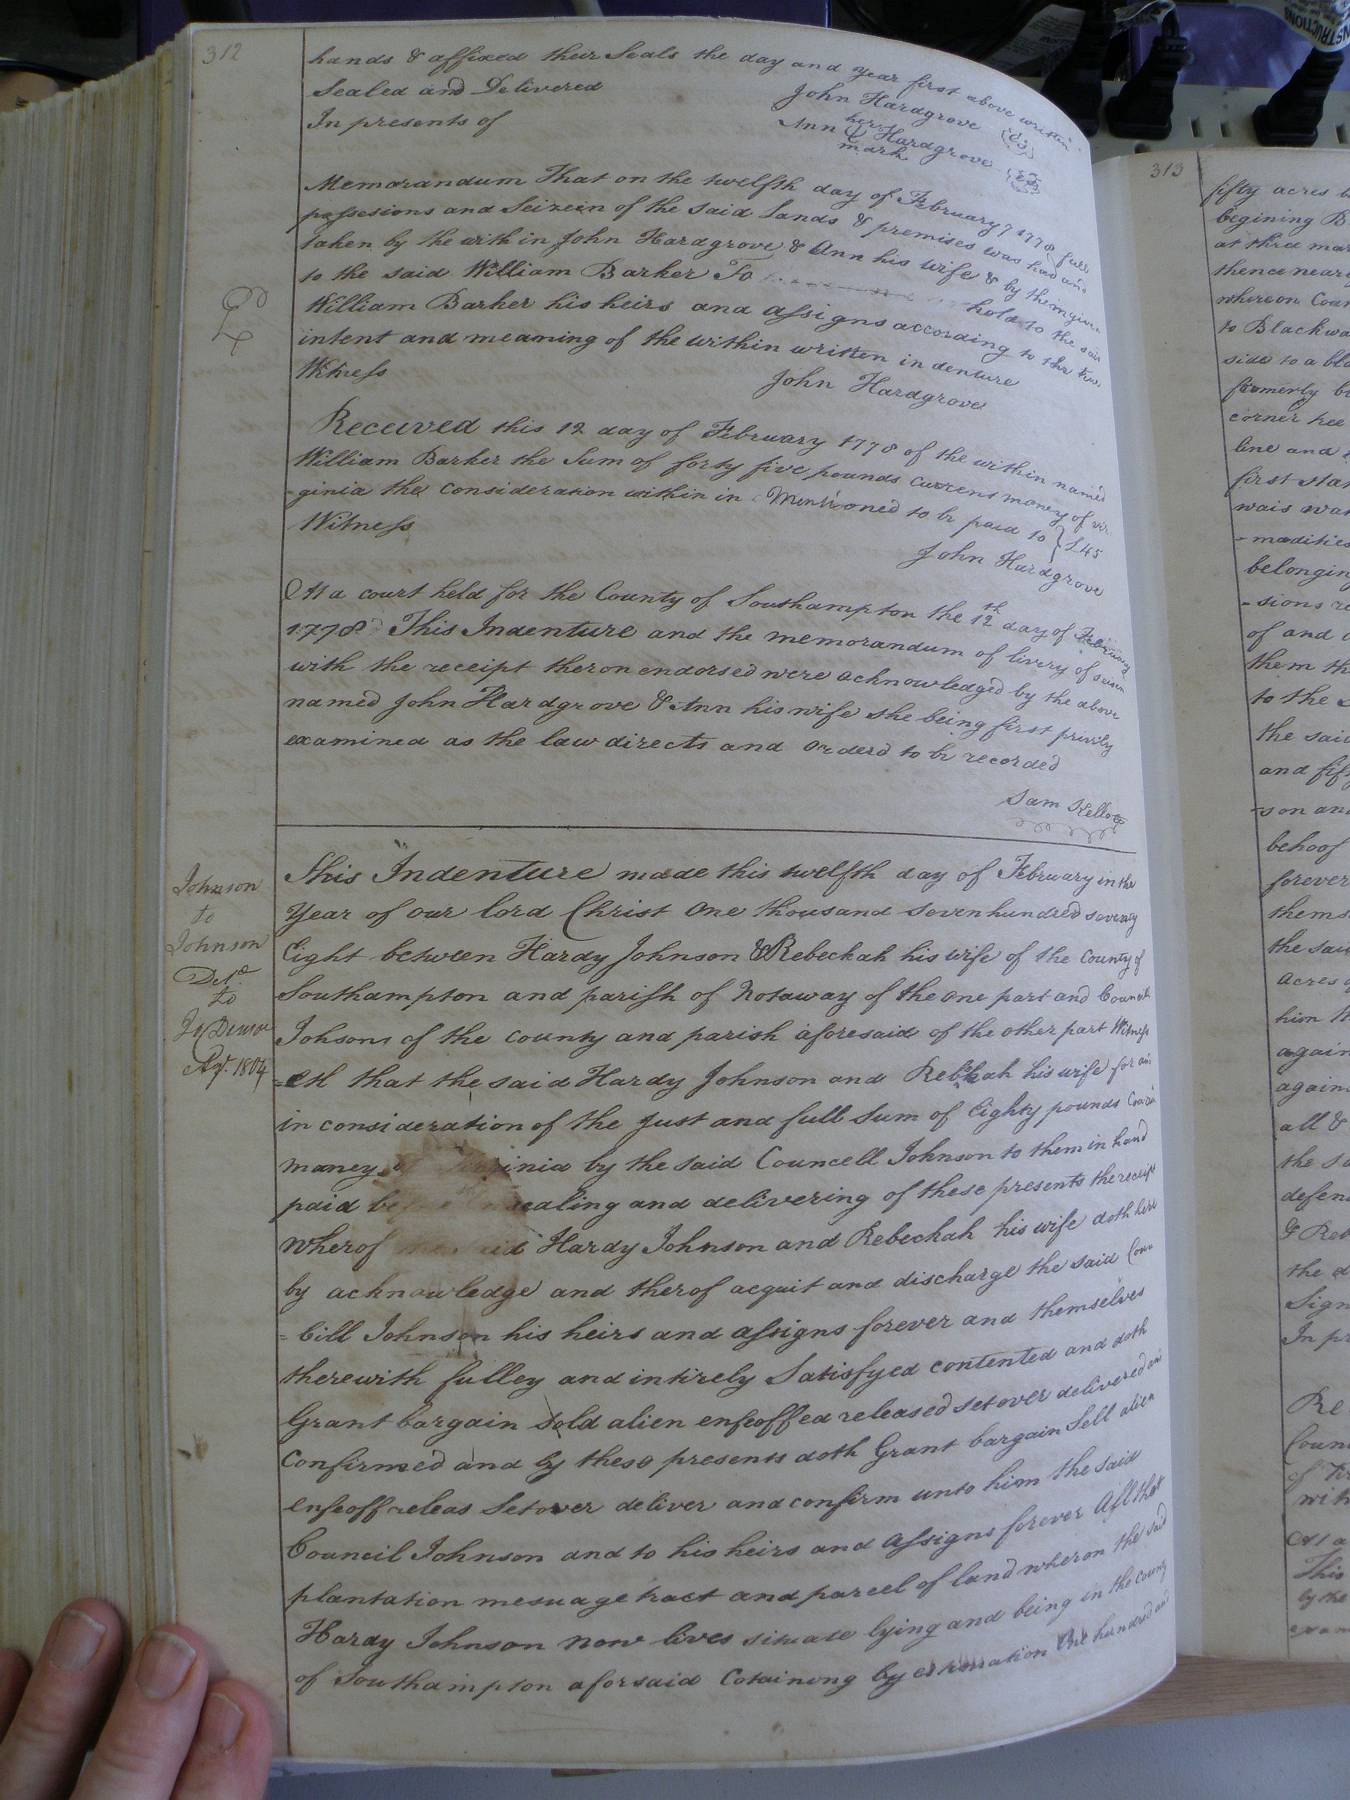 312
hands & affixed their Seals the day and year first above written
Sealed and Delivered
In presents of
John Hardgrove
her
Ann Hardgrove
mark
Memorandum That on the twelfth day of February 1778 full
possesions and Seizein of the said Lands & premises was had and
taken by the with in John Hardgrove & Ann his wife & by them given
to the said William Barker To hold to the said
William Barker his heirs and assigns according to the true
intent and meaning of the within written in denture
Witness
John Hardgrove
Received this 12 day of February 1778 of the within named
William Barker the Sum of forty five pounds currens money of vir
-ginia the consideration within in Mentioned to be paid to } £45
Witness
John Hardgrove
At a court held for the County of Southampton the 12th day of February
1778 This Indenture and the memorandum of livery of seisin
with the receipt theron endorsed were acknowledged by the above
named John Hardgrove & Ann his wife she being first privily
examined as the law directs and orderd to be recorded
Sam Kello
Johnson
to
Johnson
Deld
to
Apr. 1804
This Indenture made this twelfth day of February in the
Year of our lord Christ One thousand seven hundred seventy
Eight between Hardy Johnson & Rebeckah his wife of the County of
Southampton and parish of Notaway of the one part and Councill
Johson of the county and parish aforesaid of the other part Witness
=eth that the said Hardy Johnson and Rebekah his wife for an
in consideration of the Just and full Sum of Eighty pounds
money of Virginia by the said Councell Johnson to them in hand
paid before the sealing and delivering of these presents the receipt
wherof the said Hardy Johnson and Rebeckah his wife doth here
by acknowledge and therof acquit and discharge the said Coun
=cill Johnson his heirs and assigns forever and themselves
therewith fulley and intirely Satisfyed contented and doth
Grant bargain sold alien enfeoffed released set over delivered and
Confirmed and by these presents doth Grant bargain Sell alien
enfeoff releas Set over deliver and confirm unto him the said
Council Johnson and to his heirs and assigns forever All that
plantation mesuage tract and parcel of land wheron the said
Hardy Johnson now lives situate lying and being in the County
of Southampton aforsaid Cotaining by estimation One hundred and
313
fifty acres
begining
at three
thence
whereon
to
side to a
formerly
corner tree
line and
first
wais
belonging
-sions
of and
them
to the
the said
and
-son and
behoof
forever
the said
acres
him
again
all &
the
the
Sign
In
At a
This
by the